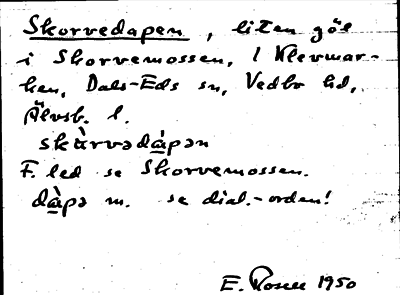 Skorvedapen, liten göl
i Skorvemossen, i Klevmar-
ken, Dals-Eds sn, Vedbo hd,
Älvsb. l.
skàrvədàpən
F. led se Skorvemossen.
dàpə m. se dial.-orden!
E. Rosell 1950